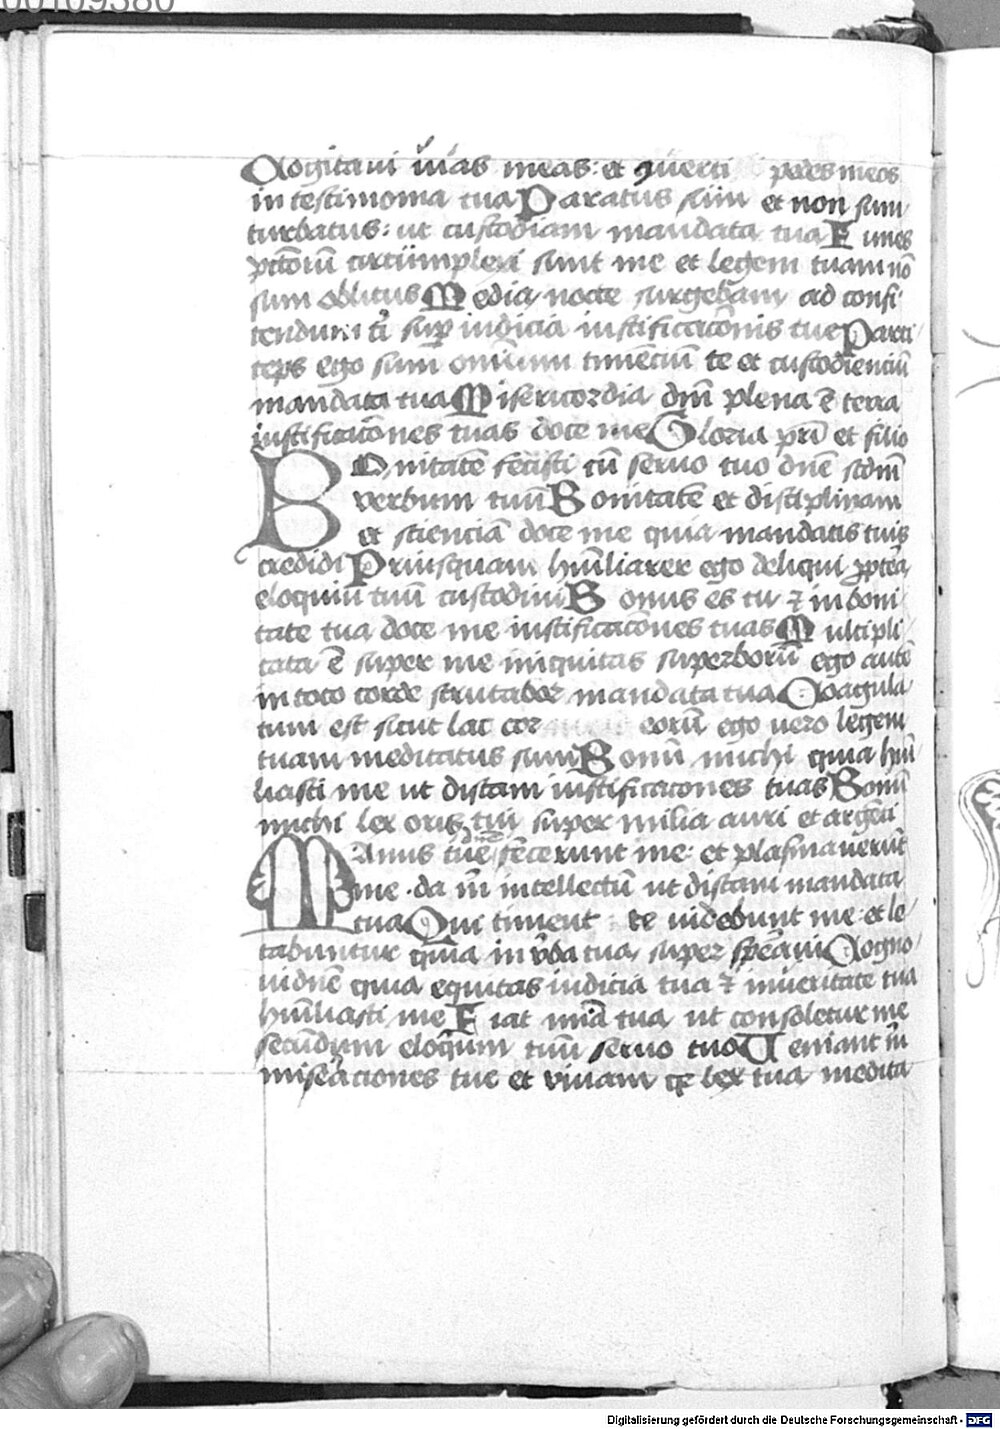 00109380
Cogitavi vias meas: et ꝯverti pedes meos
in testimonia tua Paratus sum et non sum
turbatus: ut custodiam mandata tua Funes
pctōrū circūmplexi sunt me et legem tuam nō
sum oblitus Media nocte surgebam ad confi-
tendum t̄ sup iudicia iustificacōnis tue Parti-
ceps ego sum omnium timēciū te et custodienciū
mandata tua Misericordia dnī plena ē terra
iustificacōnes tuas doce me Gloria pri et filio
Bonitatē fecisti cū servo tuo dnē scdm̄
verbum tuū Bonitatē et disciplinam
et scienciā doce me quia mandatis tuis
credidi Priusquam hūiliarer ego deliqui ꝓptea
eloquiū tuū custodivi Bonus es tu ⁊ in boni-
tate tua doce me iustificacōnes tuas Multipli-
cata ē super me iniquitas superborū ego autē
in toto corde scrutabor mandata tua Coagula-
tum est sicut lac cor eorū ego vero legem
tuam meditatus sum Bonū michi quia hūi-
liasti me ut discam iustificacones tuas Bonū
michi lex oris tui super milia auri et argēti
Manus tue dne fecerunt me: et plasmaverūt
me . da m̄ intellectū ut discam mandata
tua Qui timent te videbunt me et le-
tabuntur quia in v̄ba tua super spēavi Cogno-
vi dnē quia equitas iudicia tua ⁊ in veritate tua
hūiliasti me Fiat mīa tua ut consoletur me
secūdum eloquium tuū servo tuo Veniant m̄
miseāciones tue et vivam qȝ lex tua medita
Digitalisierung gefördert durch die Deutsche Forschungsgemeinschaft - DFG